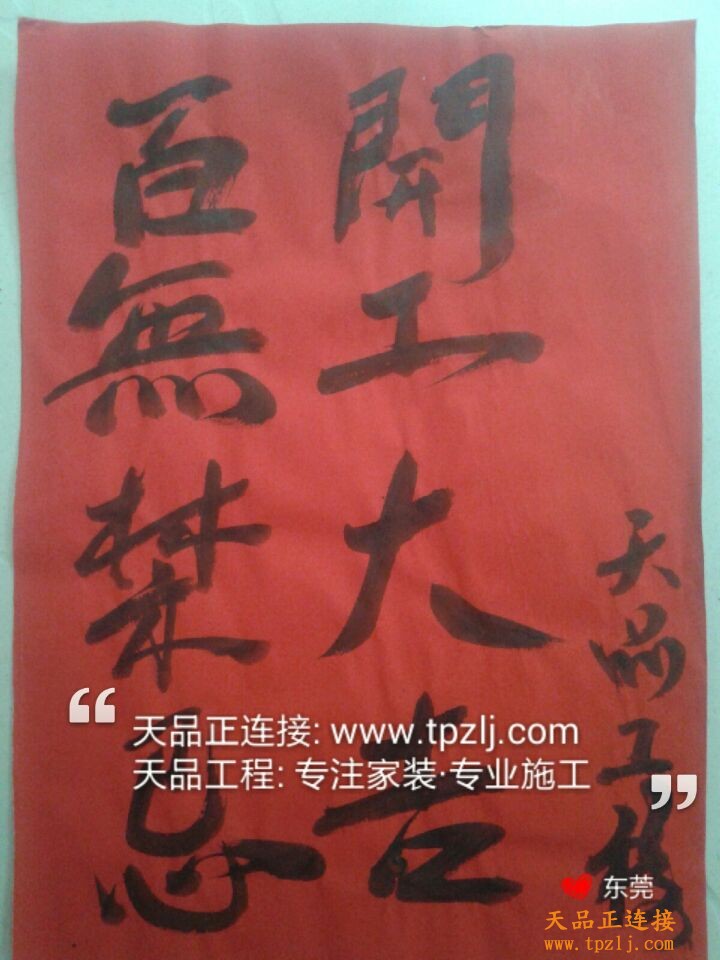 天品工程
開工大吉
百無禁忌
天品正连接: www.tpzlj.com
天品工程: 专注家装·专业施工
东莞
天品正连接
www.tpzlj.com